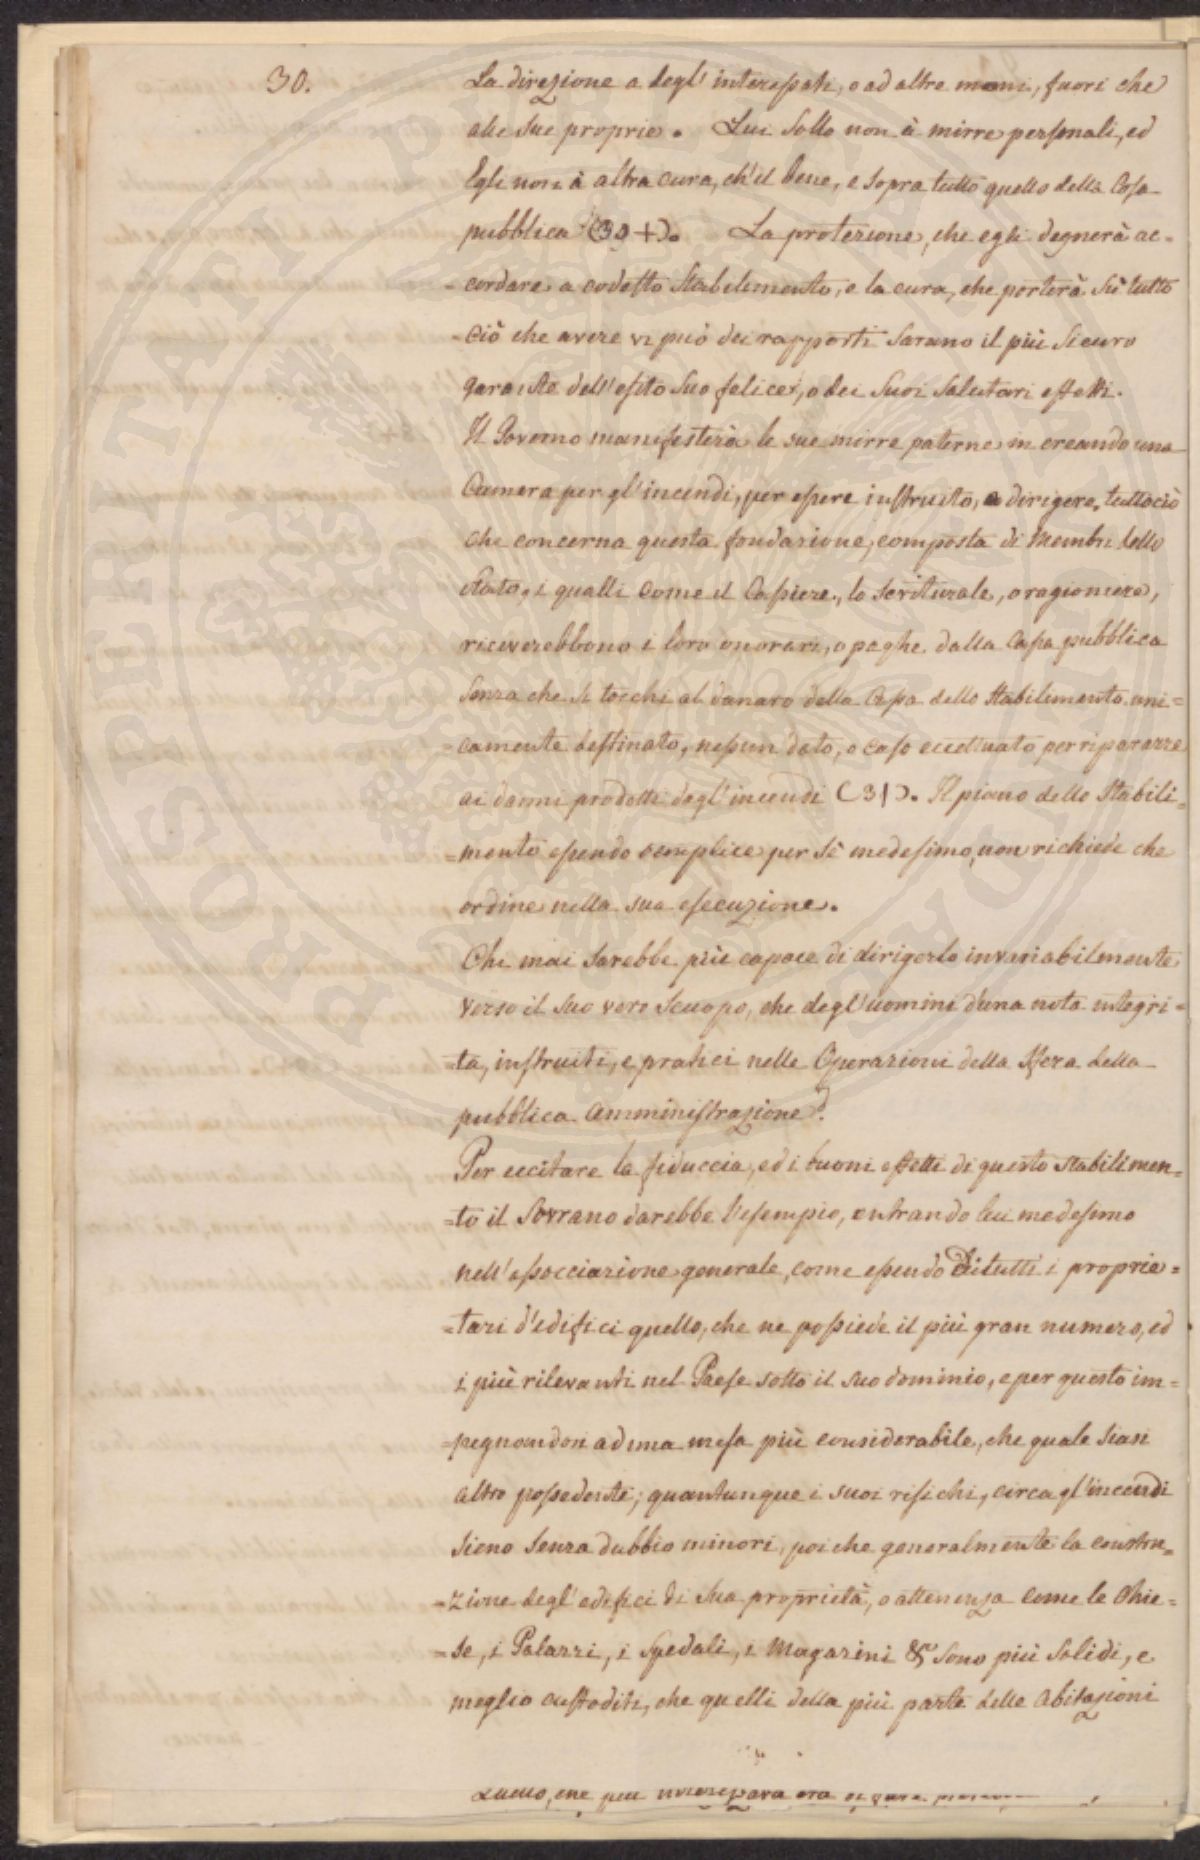 30.
La direzione a degl' interessati, o ad altre mani, fuori che
alle sue proprie. Lui sollo non à mirre personali, ed
Egli non à altra cura, ch'il bene, e sopra tutto quello della Cosa
pubblica (30+). La protezione, che egli degnerà ac=
=cordare a codesto Stabilimento, e la cura, che porterà sù tutto
=ciò che avere vi può dei rapporti sarano il più sicuro
garante dell'esito suo felice, e dei suoi salutari effetti.
Il Governo manifesterà le sue mirre paterne in creando una
Camera per gl'incendi, per essere instruito, e dirigere, tuttociò
che concerna questa fondazione, composta di Membri dello
stato, i qualli come il Cassiere, lo scritturale, o ragioniere,
riceverebbono i loro onorari, o paghe dalla Cassa pubblica
senza che si tocchi al danaro della Cassa dello Stabilimento uni=
=camente destinato, nessun dato, o caso eccettuato per ripararre
ai danni prodotti degl'incendi (31). Il piano dello Stabili=
=mento essendo semplice per sè medesimo, non richiede che
ordine nella sua esecuzione.
Chi mai sarebbe più capace di dirigerlo invariabilmente
verso il suo vero scuopo, che degl'uomini d'una nota integri=
=ta, instruiti, e pratici nelle Operazioni della sfera della
pubblica amministrazione?
Per eccitare la fiduccia, ed i buoni effetti di questo stabilimen=
=to il Sovrano darebbe l'esempio, entrando lui medesimo
nell'associazione generale, come essendo di tutti i proprie=
=tari d'edifici quello, che ne possiede il più gran numero, ed
i più rilevanti nel Paese sotto il suo dominio, e per questo im=
=pegnandosi ad una messa più considerabile, che quale siasi
altro possedente; quantunque i suoi risichi, circa gl'incendi
sieno senza dubbio minori, poi che generalmente la constru=
=zione degl'edifici di sua proprietà, o attenenza come le Chie=
=se, i Palazzi, i Spedali, i Magazini & sono più solidi, e
meglio custoditi, che quelli della più parte delle abitazioni
che più
PROSPERITATI PUBLICAE